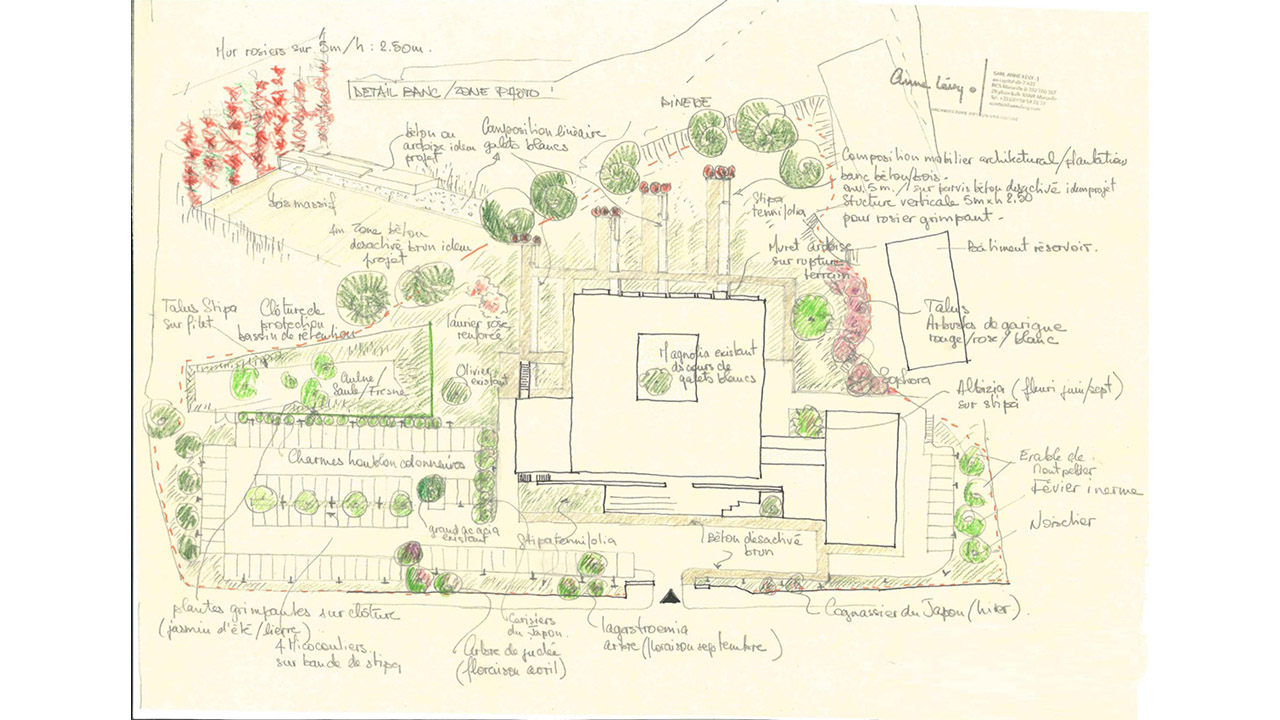 Mur rosiers sur 5m/h : 2.50m.
DETAIL BANC/ZONE PHOTO
Anne Lévy
SARL ANNE LÉVY
PINEDE
béton ou
ardoise idem
projet
Composition linéaire
galets blancs
bois massif
4m. Zone béton
désactivé brun idem
projet
Stipa
tennifolia
Composition mobilier architectural/plantation
banc béton/bois.
env. 5 m. / sur parvis béton desactivé idem projet
Structure verticale 5m x h 2.50
pour rosier grimpant.
Muret ardoise
sur rupture
terrain
Bâtiment réservoir.
Talus Stipa
sur filet
Clôture de
protection
bassin de rétention
laurier rose
renforcé
Talus
Arbustes de garigue
rouge/rose/blanc
Magnolia existant
galets blancs
Olivier
existant
Aulne/
Saule/Fresne
Sophora
Albizia (fleuri juin/sept)
sur stipa
Charmes houblon colonnaires
Erable de
Montpellier
Févier inerme
Noisetier
grand acacia
existant
Stipa tennifolia
Béton désactivé
brun
plantes grimpantes sur clôture
(jasmin d'été/lierre)
4 Micocouliers
sur bande de stipa
Cerisiers
du Japon
Arbre de judée
(floraison avril)
lagerstroemia
arbre (floraison septembre)
Cognassier du Japon (hiver).